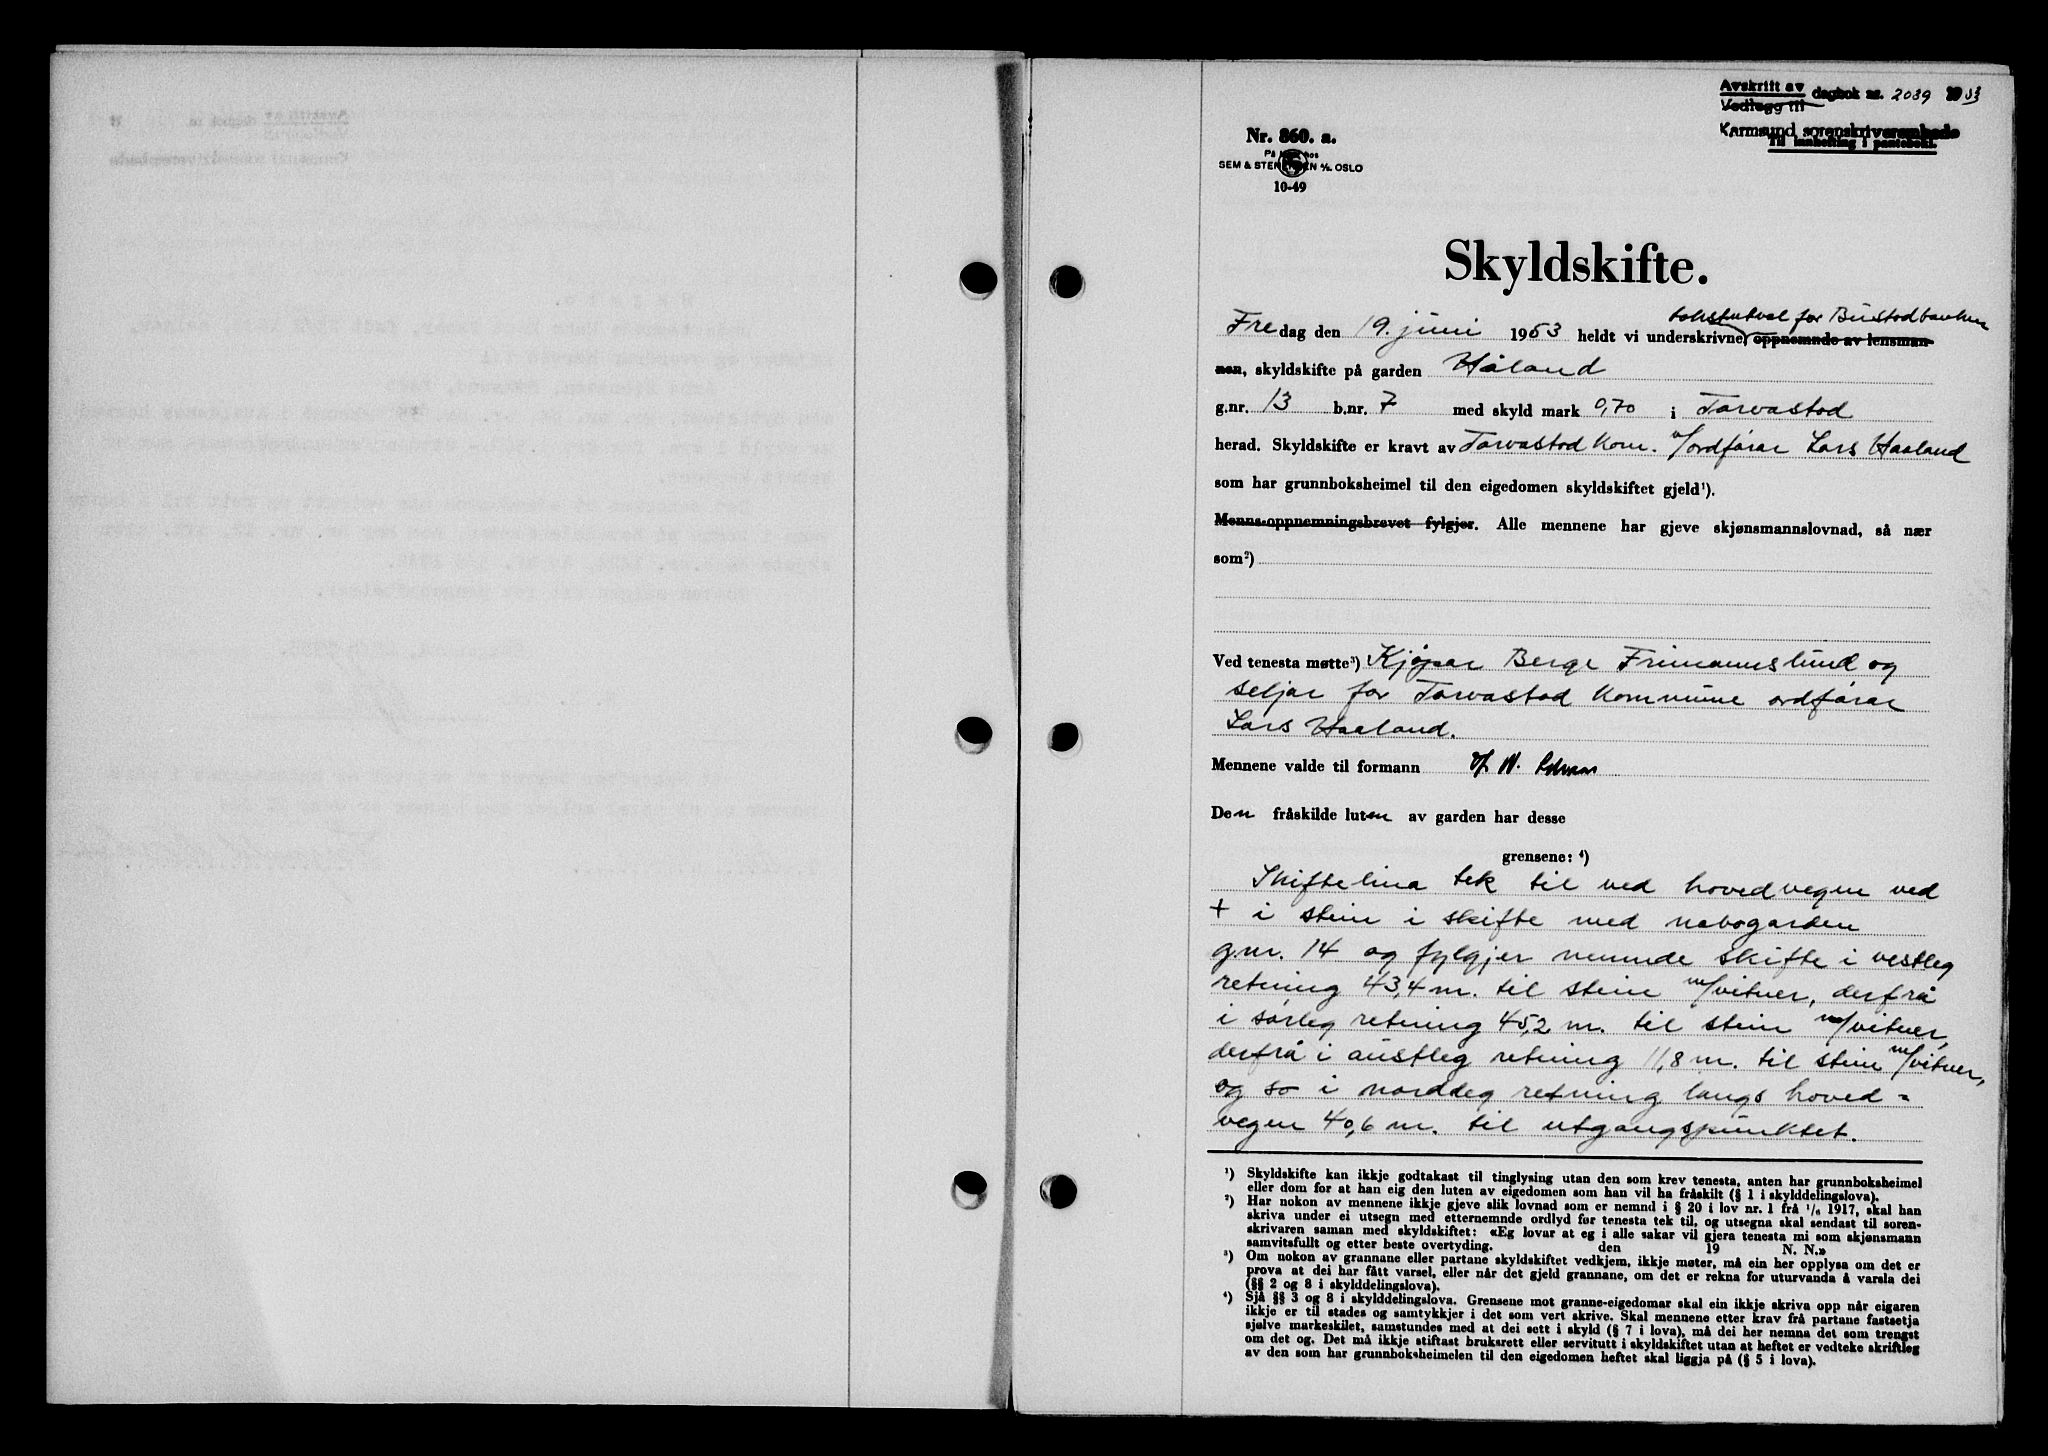 Avskrift av
Vedlegg til dagbok nr. 2039 1953
Karmsund sorenskriverembede
Til innhefting i panteboki.
Nr. 860. a.
På lager hos
SEM & STENERSEN A/S. OSLO
10-49
Skyldskifte.
takstutval for Bustadbanken
Fredag den 19. juni 1953 heldt vi underskrivne, oppnemnde av lensman-
nen, skyldskifte på garden Håland
g.nr. 13 b.nr. 7 med skyld mark 0,70 i Torvastad
herad. Skyldskifte er kravt av Torvastad kom. v/ordførar Lars Haaland
som har grunnboksheimel til den eigedomen skyldskiftet gjeld¹).
Menns-oppnemningsbrevet fylgjer. Alle mennene har gjeve skjønsmannslovnad, så nær
som²)
Ved tenesta møtte³) Kjøpar Berge Frimannslund og
seljar for Torvastad kommune ordførar
Lars Haaland.
Mennene valde til formann
Den fråskilde luten av garden har desse
grensene: ⁴)
Skiftelina tek til ved hovedvegen ved
+ i stein i skifte med nabogarden
gnr. 14 og fylgjer nemnde skifte i vestleg
retning 43,4 m. til stein m/vitner, derfrå
i sørleg retning 45,2 m. til stein m/vitner,
derfrå i austleg retning 11,8 m. til stein m/vitner,
og so i nordleg retning langs hoved-
vegen 40,6 m. til utgangspunktet.
¹) Skyldskifte kan ikkje godtakast til tinglysing utan den som krev tenesta, anten har grunnboksheimel
eller dom for at han eig den luten av eigedomen som han vil ha fråskilt (§ 1 i skylddelingslova).
²) Har nokon av mennene ikkje gjeve slik lovnad som er nemnd i § 20 i lov nr. 1 frå ¹/₆ 1917, skal han
skriva under ei utsegn med etternemnde ordlyd før tenesta tek til, og utsegna skal sendast til soren-
skrivaren saman med skyldskiftet: «Eg lovar at eg i alle sakar vil gjera tenesta mi som skjønsmann
samvitsfullt og etter beste overtyding. den 19 N. N.»
³) Om nokon av grannane eller partane skyldskiftet vedkjem, ikkje møter, må ein her opplysa om det er
prova at dei har fått varsel, eller når det gjeld grannane, om det er rekna for uturvanda å varsla dei
(§§ 2 og 8 i skylddelingslova).
⁴) Sjå §§ 3 og 8 i skylddelingslova. Grensene mot granne-eigedomar skal ein ikkje skriva opp når eigaren
ikkje er til stades og samtykkjer i det som vert skrive. Skal mennene etter krav frå partane fastsetja
sjølve markeskilet, samstundes med at dei sett i skyld (§ 7 i lova), må dei her nemna det som trengst
om det og. Det må ikkje stiftast bruksrett eller servitutt i skyldskiftet utan at heftet er vedteke skriftleg
av den som har grunnboksheimelen til den eigedomen heftet skal liggja på (§ 5 i lova).